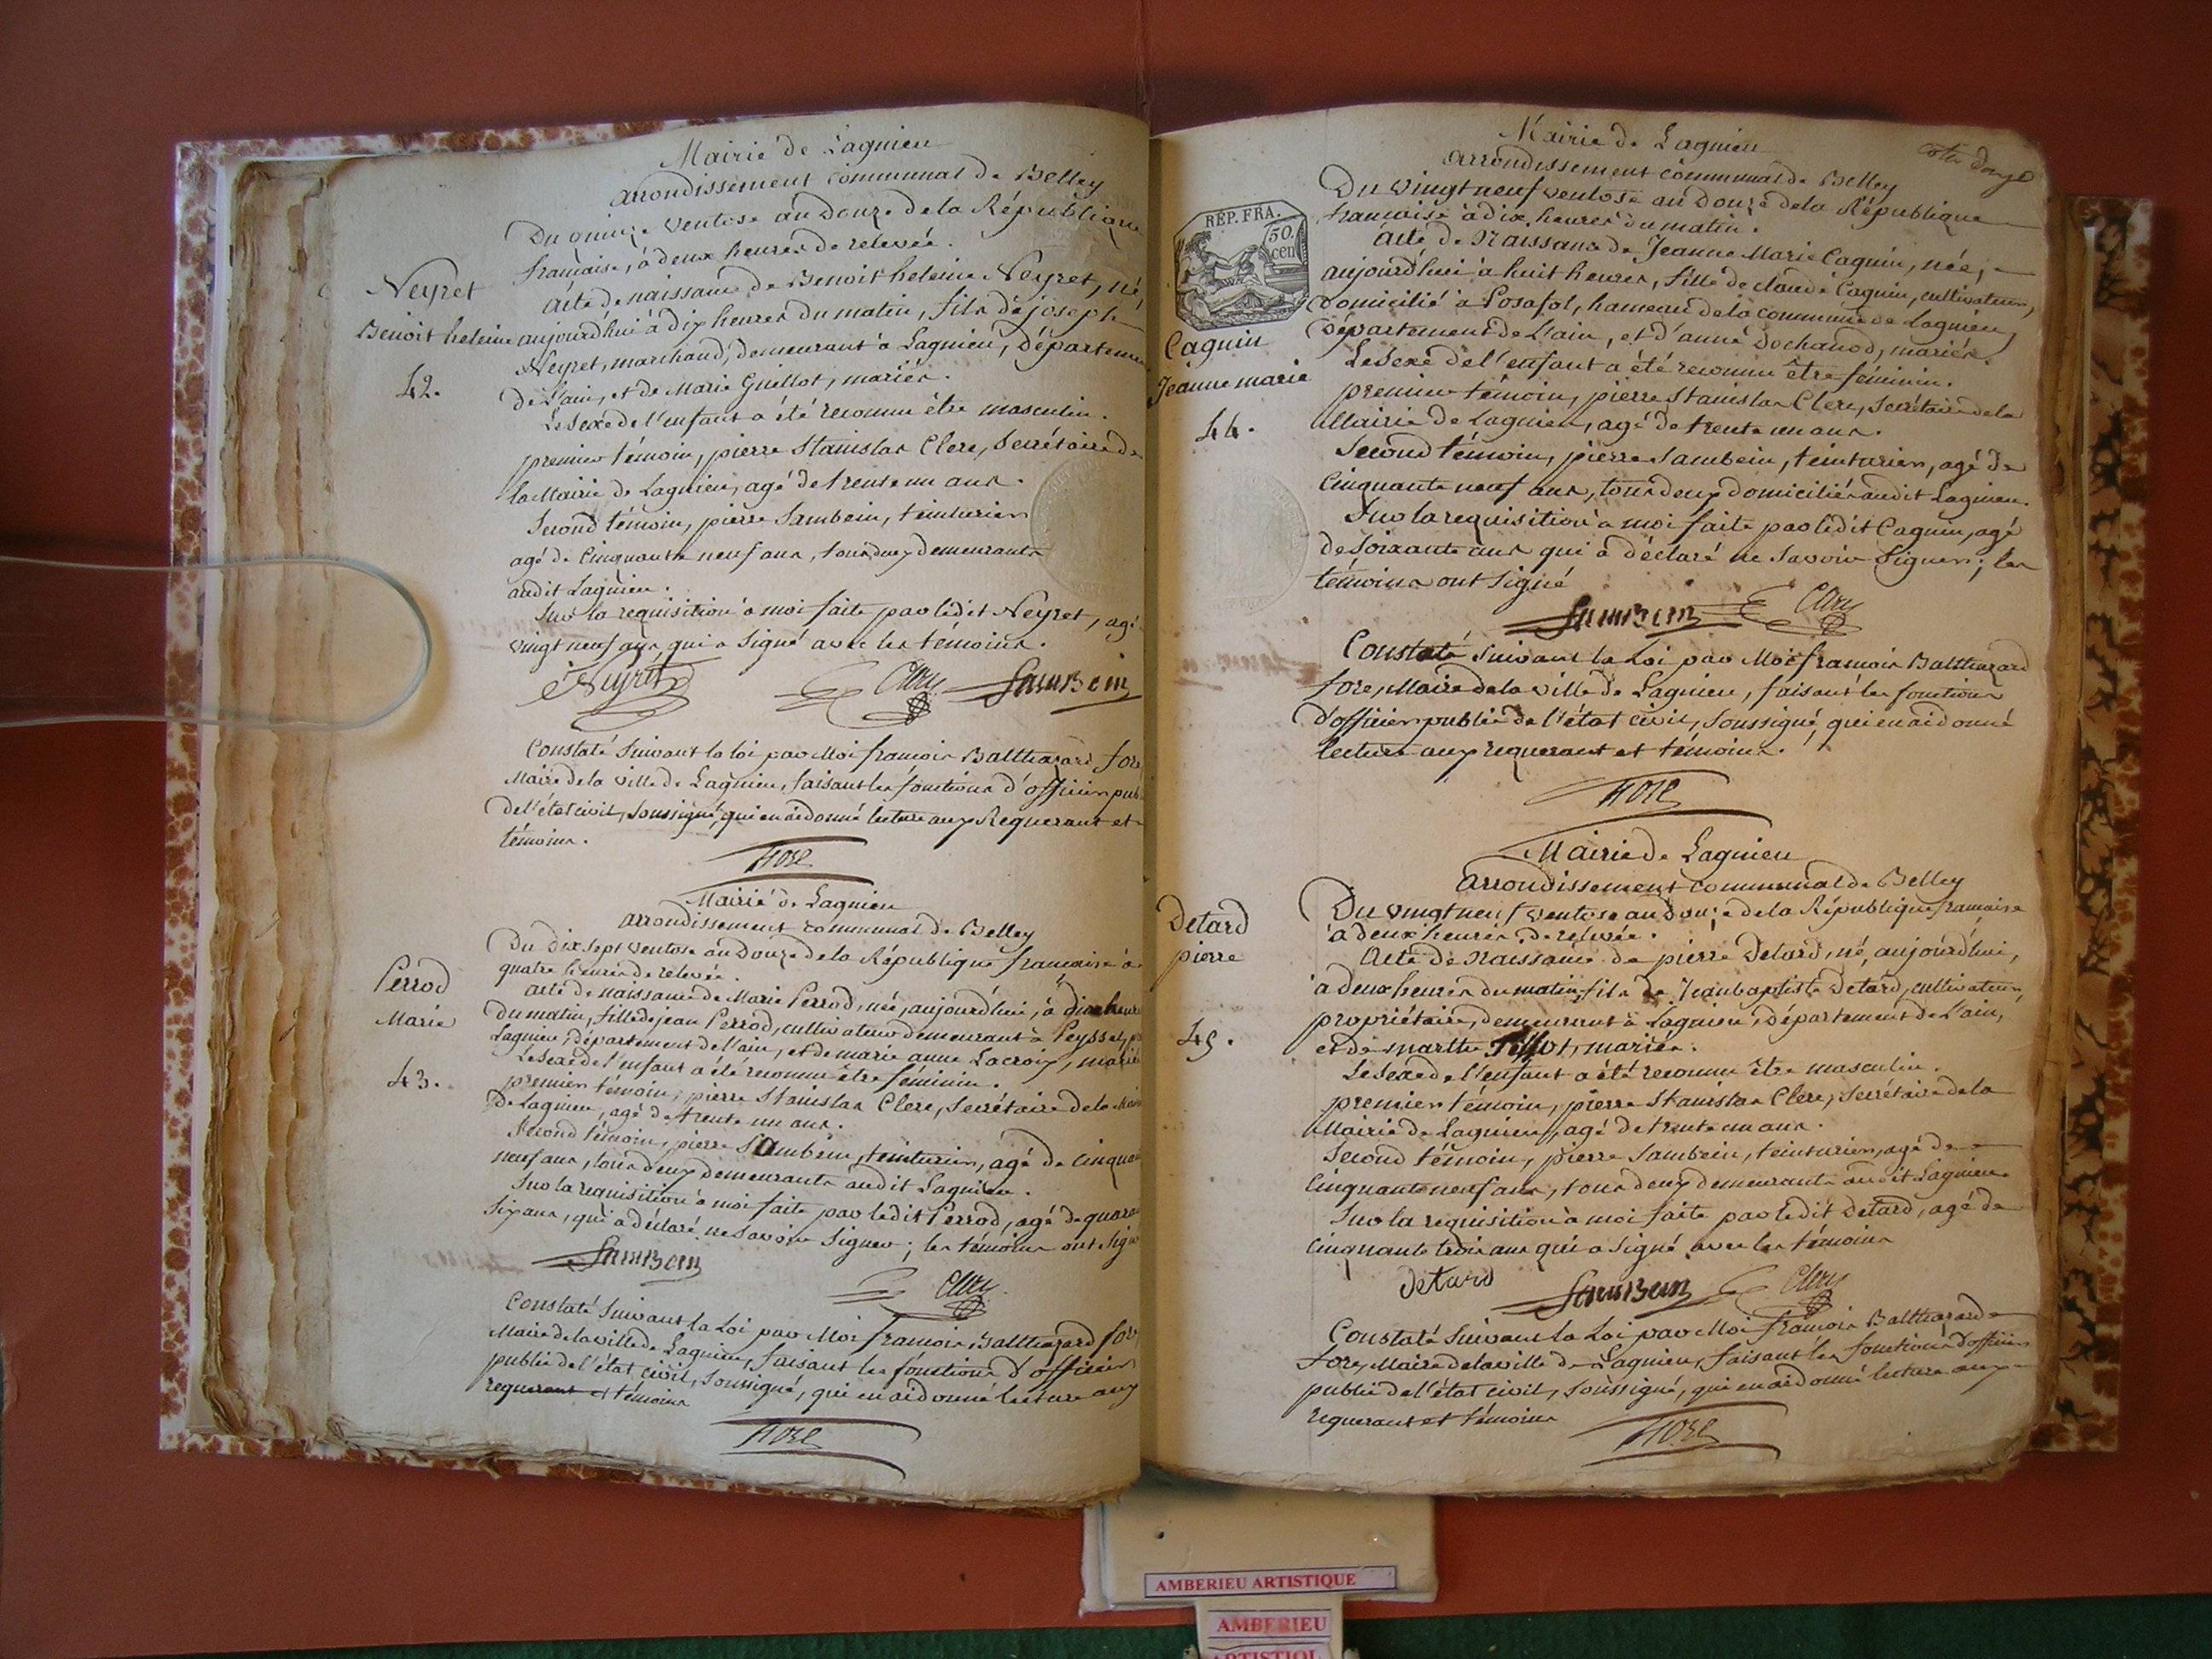 Mairie de Lagnieu
arrondissement communal de Belley
Du quinze ventose an Douze de la République
française, à deux heures de relevée.
Neyret
Benoit heleine
42.
Acte de naissance de Benoit heleine Neyret, né,
aujourd'hui à dix heures du matin, fils de joseph
Neyret, marchand, demeurant à Lagnieu, départeme
de L'ain, et de Marie Guillot, mariés.
Le Sexe de l'enfant a été reconnu être masculin.
premier témoin, pierre Stanislas Clerc, Secrétaire de
la Mairie de Lagnieu, agé de trente un ans.
Second témoin, pierre Sambein, teinturier
agé de Cinquante neuf ans, tous deux demeurants
audit Lagnieu.
Sur la requisition à moi faite par ledit Neyret, agé
vingt neuf ans, qui a Signé avec les témoins.
Neyret Clerc SamBein
Constaté Suivant la loi par Moi françois Balthazard fore
Maire de la ville de Lagnieu, faisant les fonctions d'officier pub
de l'état civil, soussigné, qui en ai donné lecture aux Requerant et
témoins.
fore
Mairie de Lagnieu
arrondissement communal de Belley
Du dix sept ventose an Douze de la République française à
quatre heures de relevée.
Perrod
Marie
43.
acte de naissance de Marie Perrod, née, aujourd'hui, à dix heure
du matin, fille de jean Perrod, cultivateur demeurant à Peysse,
Lagnieu, département de l'ain, et de marie anne Lacroix, marié
Le sexe de l'enfant a été reconnu être féminin.
premier témoin, pierre Stanislas Clerc, Secrétaire de la Mair
de Lagnieu, agé de trente un ans.
Second témoin, pierre Sambein, teinturier, agé de Cinquan
neuf ans, tous deux demeurants audit Lagnieu.
Sur la requisition à moi faite par ledit Perrod, agé de quara
Six ans, qui a déclaré ne Savoir Signer; les témoins ont Signé
SamBein Clerc
Constaté Suivant la Loi par Moi françois Balthazard fore
Maire de la ville de Lagnieu, faisant les fonctions d'officier
public de l'état civil, Soussigné, qui en ai donné lecture aux
requerant et témoins
fore
Mairie de Lagnieu
arrondissement communal de Belley
Du vingt neuf ventose an Douze de la République
française à dix heures du matin.
RÉP. FRA.
50.
cen
Caquin
Jeanne marie
44.
Acte de Naissance de Jeanne Marie Caquin, née,
aujourd'hui à huit heures, fille de claude Caquin, cultivateur,
Domicilié à Posafol, hameau de la commune de Lagnieu,
Département de L'ain, et d'anne Dochanod, mariés.
Le Sexe de l'enfant a été reconnu être féminin.
premier témoin, pierre Stanislas Clerc, Secrétaire de la
Mairie de Lagnieu, agé de trente un ans.
Second témoin, pierre Sambein, teinturier, agé de
Cinquante neuf ans, tous deux domiciliés audit Lagnieu.
Sur la requisition à moi faite par ledit Caquin, agé
de Soixante ans qui a déclaré ne Savoir Signer; les
témoins ont Signé
SamBein Clerc
Constaté Suivant la Loi par Moi françois Balthazard
fore, Maire de la ville de Lagnieu, faisant les fonctions
d'officier public de l'état civil, Soussigné, qui en ai donné
lecture aux requerant et témoins.
fore
Mairie de Lagnieu
arrondissement communal de Belley
Du vingt neuf ventose an Douze de la République française
à deux heures de relevée.
Detard
pierre
45.
Acte de Naissance de pierre Detard, né, aujourd'hui,
à deux heures du matin, fils de Jean baptiste Detard, cultivateur,
propriétaire, demeurant à Lagnieu, Département de L'ain,
et de marthe mariés.
Le Sexe de l'enfant a été reconnu être masculin.
premier témoin, pierre Stanislas Clerc, Secrétaire de la
Mairie de Lagnieu, agé de trente un ans.
Second témoin, pierre Sambein, teinturier, agé de
Cinquante neuf ans, tous deux demeurants audit Lagnieu
Sur la requisition à moi faite par ledit Detard, agé de
Cinquante trois ans qui a Signé avec les témoins
detard SamBein Clerc
Constaté Suivant la Loi par Moi françois Balthazard
fore, Maire de la ville de Lagnieu, faisant les fonctions d'officier
public de l'état civil, Soussigné, qui en ai donné lecture aux
requerant et témoins
fore
AMBERIEU ARTISTIQUE
AMBERIEU
ARTISTIQU